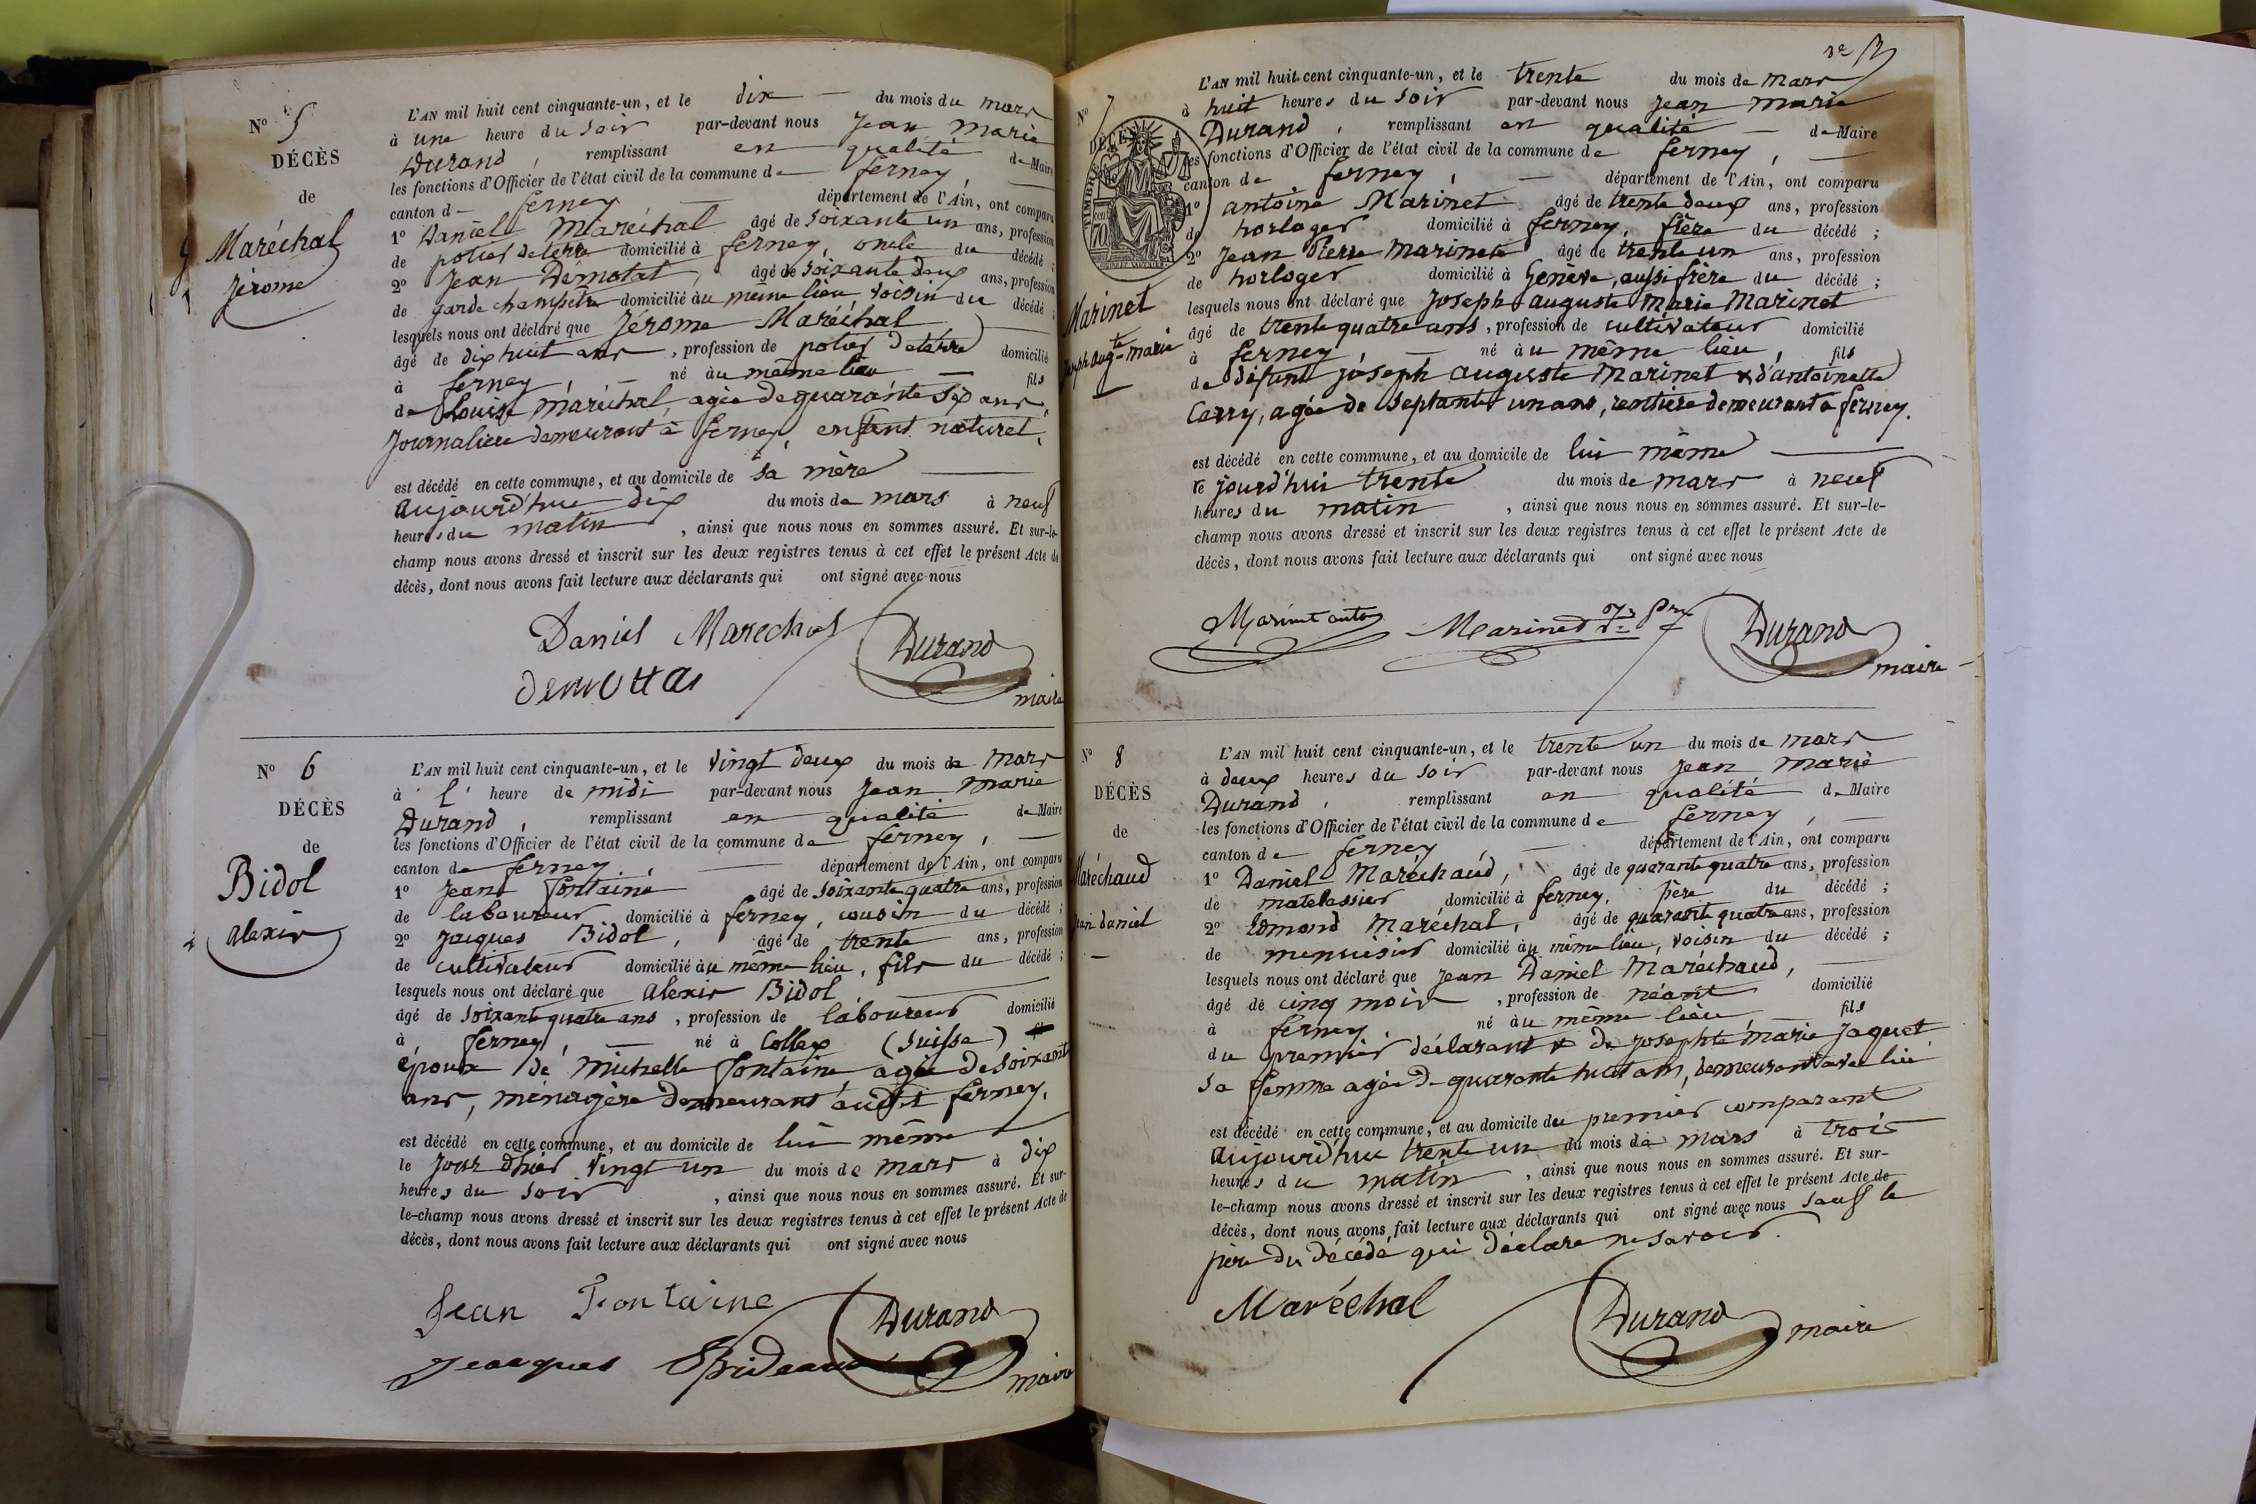 N° 5
DÉCÈS
de
Maréchal
Jérome
L'AN mil huit cent cinquante-un, et le dix du mois du mars
à une heure du soir par-devant nous Jean Marie
Durand, remplissant en qualité de Maire
les fonctions d'Officier de l'état civil de la commune de ferney,
canton de ferney département de l'Ain, ont comparu
1° Daniel Maréchal âgé de soixante un ans, profession
de potier de terre domicilié à ferney, oncle du décédé ;
2° Jean Démotat, âgé de soixante deux ans, profession
de garde champêtre domicilié au même lieu, voisin du décédé ;
lesquels nous ont déclaré que Jérome Maréchal
âgé de dix huit ans, profession de potier de terre domicilié
à ferney, né au même lieu fils
de Louise Maréchal, agée de quarante six ans,
Journalière demeurant à ferney, enfant naturel,
est décédé en cette commune, et au domicile de sa mère
aujourd'hui dix du mois de mars à neuf
heures du matin, ainsi que nous nous en sommes assuré. Et sur-le-
champ nous avons dressé et inscrit sur les deux registres tenus à cet effet le présent Acte de
décès, dont nous avons fait lecture aux déclarants qui ont signé avec nous
Daniel Marechal Durand
maire
N° 6
DÉCÈS
de
Bidol
alexis
L'AN mil huit cent cinquante-un, et le vingt deux du mois de mars
à l' heure de midi par-devant nous Jean Marie
Durand, remplissant en qualité de Maire
les fonctions d'Officier de l'état civil de la commune de ferney,
canton de ferney département de l'Ain, ont comparu
1° Jean fontaine âgé de soixante quatre ans, profession
de laboureur domicilié à ferney, cousin du décédé ;
2° Jacques Bidol, âgé de trente ans, profession
de cultivateur domicilié au même lieu, fils du décédé ;
lesquels nous ont déclaré que alexis Bidol
âgé de soixante quatre ans, profession de laboureur domicilié
à ferney, né à Collex (Suisse)
époux de Michelle fontaine agée de soixante
ans, ménagère demeurant audit ferney.
est décédé en cette commune, et au domicile de lui même
le jour d'hier vingt un du mois de mars à dix
heures du soir, ainsi que nous nous en sommes assuré. Et sur-
le-champ nous avons dressé et inscrit sur les deux registres tenus à cet effet le présent Acte de
décès, dont nous avons fait lecture aux déclarants qui ont signé avec nous
Jean Fontaine Durand
Jeacques maire
N° 7
DÉCÈS
Marinet
Joseph augte marie
L'AN mil huit cent cinquante-un, et le trente du mois de mars
à huit heures du soir par-devant nous Jean Marie
Durand, remplissant en qualité de Maire
les fonctions d'Officier de l'état civil de la commune de ferney,
canton de ferney, département de l'Ain, ont comparu
1° antoine Marinet âgé de trente deux ans, profession
de horloger domicilié à ferney, frère du décédé ;
2° Jean Pierre Marinet âgé de trente un ans, profession
de horloger domicilié à Genève, aussi frère du décédé ;
lesquels nous ont déclaré que Joseph auguste Marie Marinet
âgé de trente quatre ans, profession de cultivateur domicilié
à ferney, né au même lieu, fils
de défunt joseph auguste Marinet & d'antoinette
Carry, agée de septante un ans, rentière demeurant à ferney.
est décédé en cette commune, et au domicile de lui même
ce jourd'hui trente du mois de mars à neuf
heures du matin, ainsi que nous nous en sommes assuré. Et sur-le-
champ nous avons dressé et inscrit sur les deux registres tenus à cet effet le présent Acte de
décès, dont nous avons fait lecture aux déclarants qui ont signé avec nous
Marinet Marinet Durand
maire
N° 8
DÉCÈS
de
Maréchaud
Jean daniel
L'AN mil huit cent cinquante-un, et le trente un du mois de mars
à deux heures du soir par-devant nous Jean Marie
Durand, remplissant en qualité de Maire
les fonctions d'Officier de l'état civil de la commune de ferney,
canton de ferney, département de l'Ain, ont comparu
1° Daniel Maréchaud, âgé de quarante quatre ans, profession
de matelassier domicilié à ferney, père du décédé ;
2° Edmond Maréchal, âgé de quarante quatre ans, profession
de menuisier domicilié au même lieu, voisin du décédé ;
lesquels nous ont déclaré que Jean Daniel Maréchaud,
âgé de cinq mois, profession de néant domicilié
à ferney né au même lieu, fils
du premier déclarant & de Josephte Marie Jaquet
sa femme agée de quarante huit ans, demeurant avec lui
est décédé en cette commune, et au domicile du premier comparant
aujourd'hui trente un du mois de mars à trois
heures du matin, ainsi que nous nous en sommes assuré. Et sur-
le-champ nous avons dressé et inscrit sur les deux registres tenus à cet effet le présent Acte de
décès, dont nous avons fait lecture aux déclarants qui ont signé avec nous sauf le
père du décédé qui déclare ne savoir.
Maréchal Durand maire